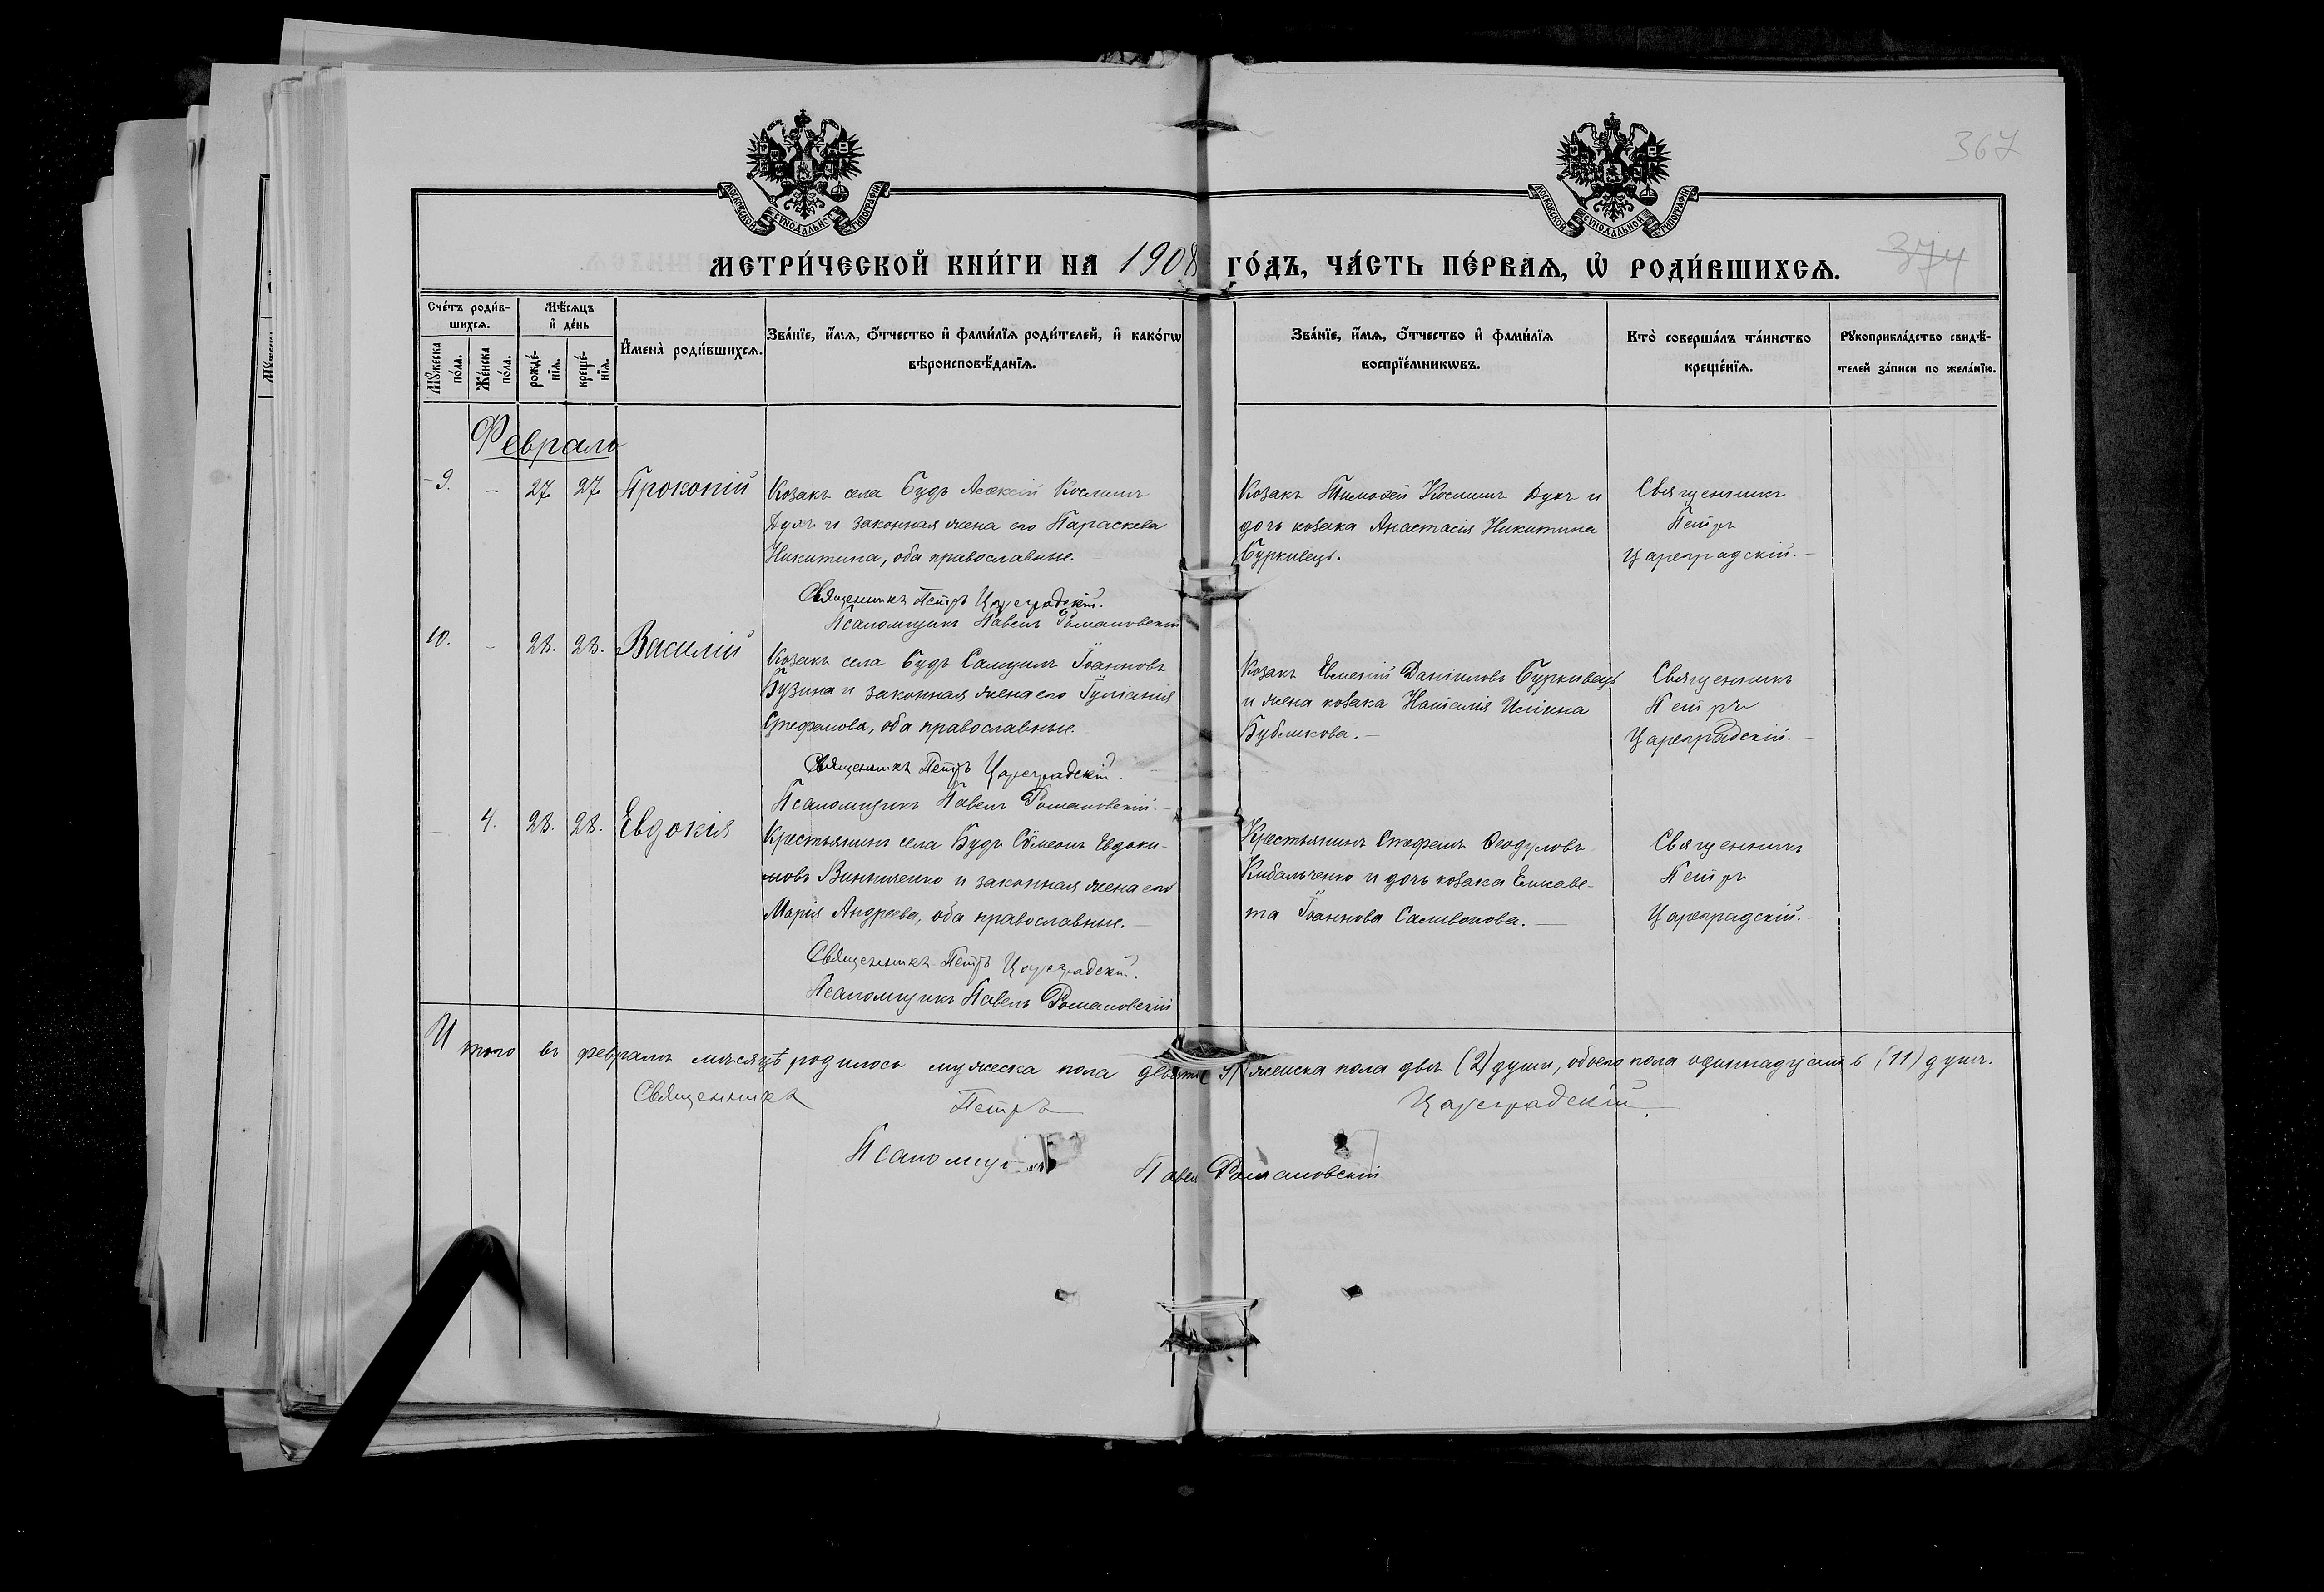 367
МОСКОВСКОЙ СУНОДАЛЬНОЙ ТИПОГРАФІИ
МОСКОВСКОЙ СУНОДАЛЬНОЙ ТИПОГРАФІИ
374
МЕТРИ́ЧЕСКОЙ КНИ́ГИ НА 1908 ГО́ДЪ, ЧА́СТЬ ПЕ́РВАѦ, Ѡ҆ РОДИ́ВШИХСѦ.
Сче́тъ роди́в-
шихсѧ.
Мꙋжеска по́ла.
Же́нска по́ла.
Мѣ́сѧцъ
и҆ де́нь
рожде́-
нїѧ.
креще́-
нїѧ.
И҆мена̀ роди́вшихсѧ.
Зва́нїе, и҆́мѧ, ѻ҆́тчество и҆ фами́лїѧ роди́телей, и҆ како́гѡ
вѣроисповѣ́данїѧ.
Зва́нїе, и҆́мѧ, ѻ҆́тчество и҆ фами́лїѧ
воспрїе́мникѡвъ.
Кто̀ соверша́лъ та́инство
креще́нїѧ.
Рꙋкоприкла́дство свидѣ́-
телей за́писи по жела́нїю.
Февраль
9. - 27. 27. Прокопій Козакъ села Будъ Алексій Косминъ
Духъ и законная жена его Параскева
Никитина, оба православные.
Священникъ Петръ Цареградскій.
Псаломщикъ Павелъ Романовскій
Козакъ Тимоѳей Косминъ Духъ и
дочь козака Анастасія Никитина
Буркивецъ.
Священникъ
Петръ
Цареградскій.-
10. - 28. 28. Василій
Козакъ села Будъ Самуилъ Іоанновъ
Бузина и законная жена его Іуліанія
Стефанова, оба православные.
Священникъ Петръ Цареградскій.
Псаломщикъ Павелъ Романовскій.-
Козакъ Даніиловъ Буркивецъ
и жена козака Наталія
Бубликова.-
Священникъ
Петръ
Цареградскій.-
- 4. 28. 28. Евдокія
Крестьянинъ села Будъ Сѵмеонъ Евдоки-
мовъ Винниченко и законная жена его
Марія Андреева, оба православные.-
Священникъ Петръ Цареградскій.
Псаломщикъ Павелъ Романовскій
Крестьянинъ Стефанъ Ѳеодуловъ
Кибальченко и дочь козака Елисаве-
та Іоаннова Саливонова.-
Священникъ
Петръ
Цареградскій.-
Итого въ февралѣ мѣсяцѣ родилось мужеска пола девять (9) женска пола двѣ (2) души, обоего пола одиннадцать (11) душъ.
Священникъ Петръ Цареградскій.
Псаломщикъ Павелъ Романовскій